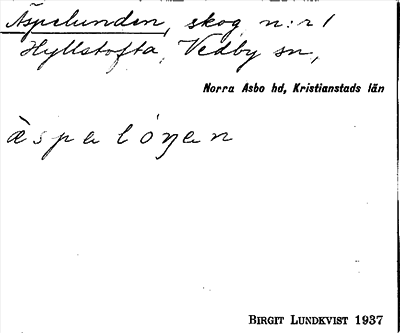 Äspelunden, skog n:r 1
Hyllstofta, Vedby sn,
Norra Åsbo hd, Kristianstads län
BIRGIT LUNDKVIST 1937